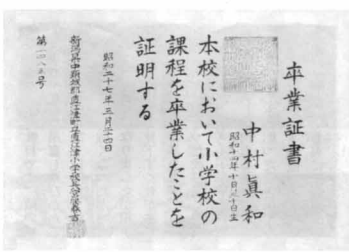 卒業証書
中村眞和
昭和十四年十月三十日生
本校において小学校の
課程を卒業したことを
証明する
昭和二十七年三月二十四日
新潟県中頸城郡直江津町立直江津小学校長
第一四八五号